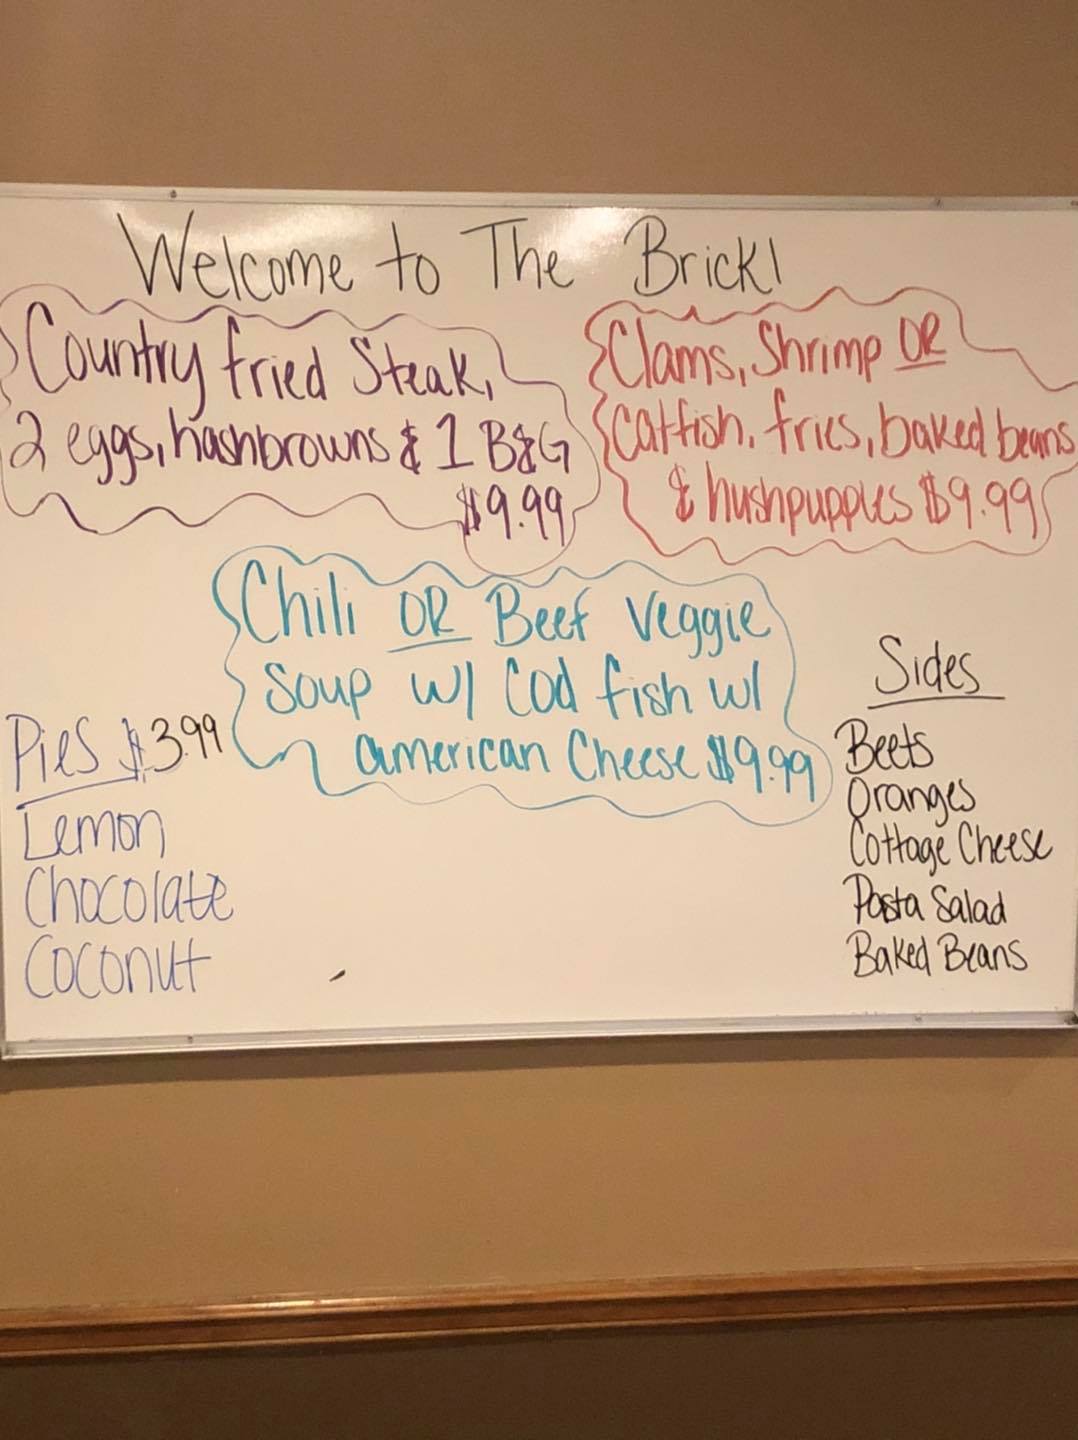 Welcome to The Brick!
Country fried Steak,
2 eggs, hashbrowns & 1 B&G
$9.99
Clams, Shrimp OR
Catfish, fries, baked beans
& hushpuppies $9.99
Chili OR Beef Veggie
Soup w/ Cod fish w/
american Cheese $9.99
Pies $3.99
Lemon
Chocolate
Coconut
Sides
Beets
Oranges
Cottage Cheese
Pasta Salad
Baked Beans